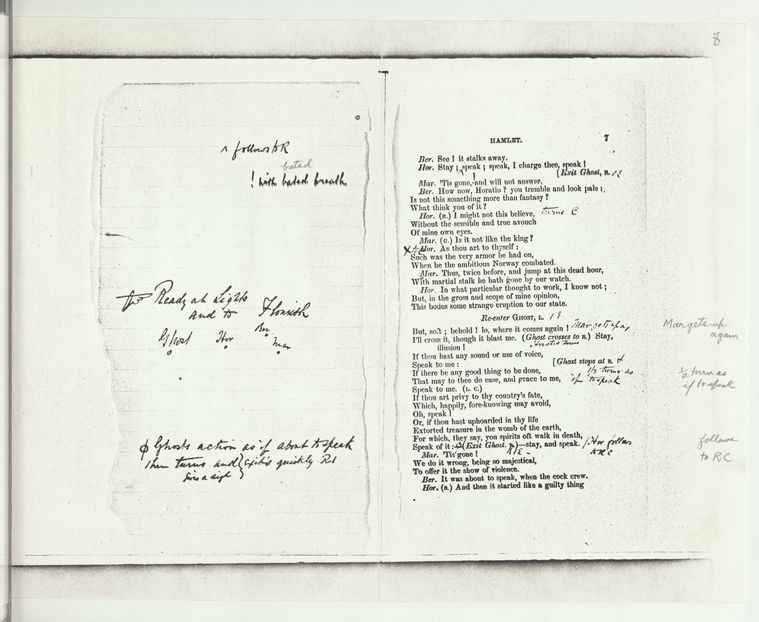 8
^ follows to R
bated
! with bated breath
Ready at Lights
and to Flourish
Ghost Hor Ber Mar
ϕ Ghosts action as if about to speak
then turns and exits quickly R1
Gives a sigh
HAMLET. 7
Ber. See! It stalks away.
Hor. Stay; speak; speak, I charge thee, speak!
[Exit Ghost, R.
Mar. 'Tis gone, and will not answer.
Ber. How now, Horatio? you tremble and look pale:
Is not this something more than fantasy?
What think you of it?
Hor. (R.) I might not this believe, turns C
Without the sensible and true avouch
Of mine own eyes.
Mar. (C.) Is it not like the king?
Hor. As thou art to thyself:
Such was the very armor he had on,
When he the ambitious Norway combated.
Mar. Thus, twice before, and jump at this dead hour,
With martial stalk he hath gone by our watch.
Hor. In what particular thought to work, I know not;
But, in the gross and scope of mine opinion,
This bodes some strange eruption to our state.
Re-enter GHOST, L. 1 E
But, soft; behold! lo, where it comes again! Mar gets up
I'll cross it, though it blast me. (Ghost crosses to R.) Stay,
illusion!
If thou hast any sound or use of voice,
Speak to me: [Ghost stops at R.
If there be any good thing to be done, 1/2 turns as
That may to thee do ease, and grace to me, if to speak
Speak to me. (L. C.)
If thou art privy to thy country's fate,
Which, happily, fore-knowing may avoid,
Oh, speak!
Or, if thou hast uphoarded in thy life
Extorted treasure in the womb of earth,
For which, they say, you spirits oft walk in death,
Speak of it: (Exit Ghost, R.)—stay, and speak. Hor follows
to R C
Mar. 'Tis gone! R1E
We do it wrong, being so majestical,
To offer it the show of violence.
Ber. It was about to speak, when the cock crew.
Hor. (R.) And then it started like a guilty thing
Mar gets up
again
1/2 turn as
if to speak
follows
to RC